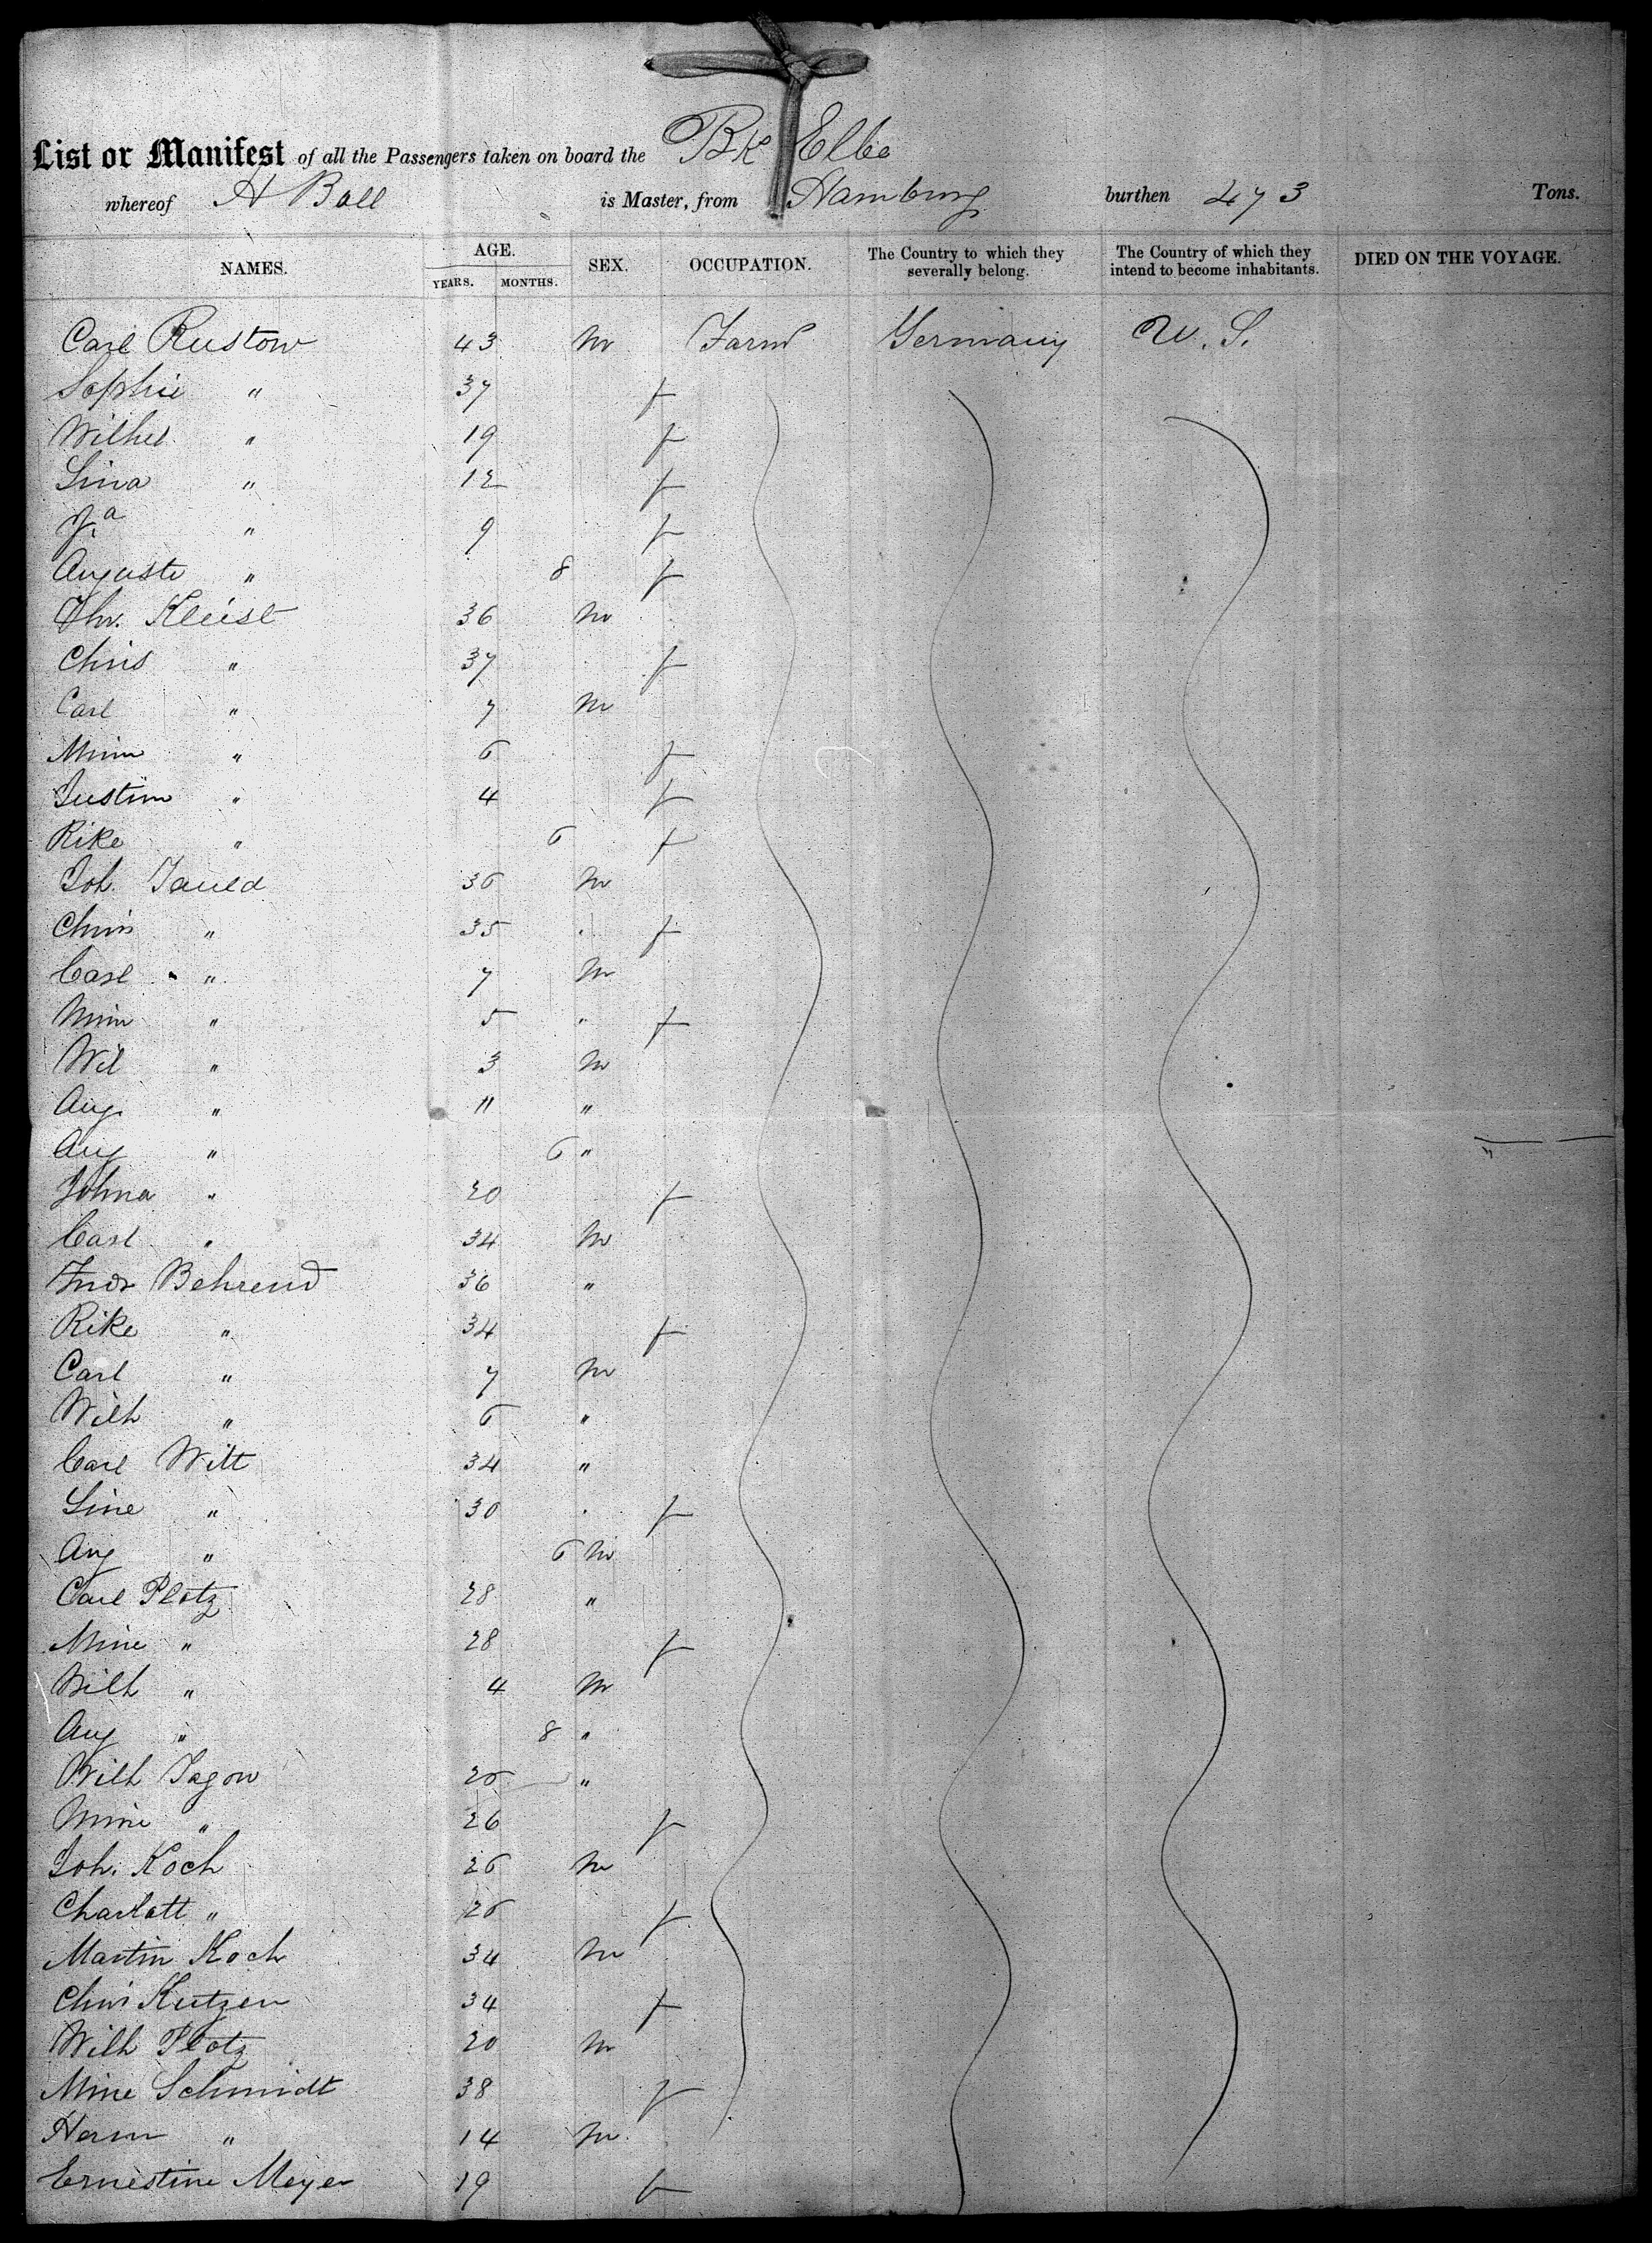 List or Manifest of all the Passengers taken on board the Bke Elbe
whereof H Ball is Master, from Hamburg burthen 473 Tons.
NAMES. AGE. YEARS. MONTHS. SEX. OCCUPATION. The Country to which they severally belong. The Country of which they intend to become inhabitants. DIED ON THE VOYAGE.
Carl Rustow 43 m Farm Germany U. S.
Sophie " 37 f
Wilhel " 19 f
Lina " 12 f
" 9 f
Auguste " 8 f
Kleist 36 m
Chris " 37 f
Carl " 7 m
Minn " 6 f
Justin " 4 f
Rike " 6 f
Joh. 36 m
Chris " 35 f
Carl " 7 m
Minn " 5 f
Wil " 3 m
Aug " 11 "
Aug " 6 "
Johna " 20 f
Carl " 34 m
Behrend 36 "
Rike " 34 f
Carl " 7 m
Wilh " 6 "
Carl Witt 34 "
Line " 30 f
Aug " 6 m
Carl Plotz 28 "
Mine " 28 f
Wilh " 4 m
Aug " 8 "
Wilh Jagow 26 "
Mine " 26 f
Joh. Koch 26 m
Charlott " 26 f
Martin Koch 34 m
Chris Kutzen 34 f
Wilh Plotz 20 m
Mine Schmidt 38 f
Herm " 14 m
Ernestine Meyer 19 f